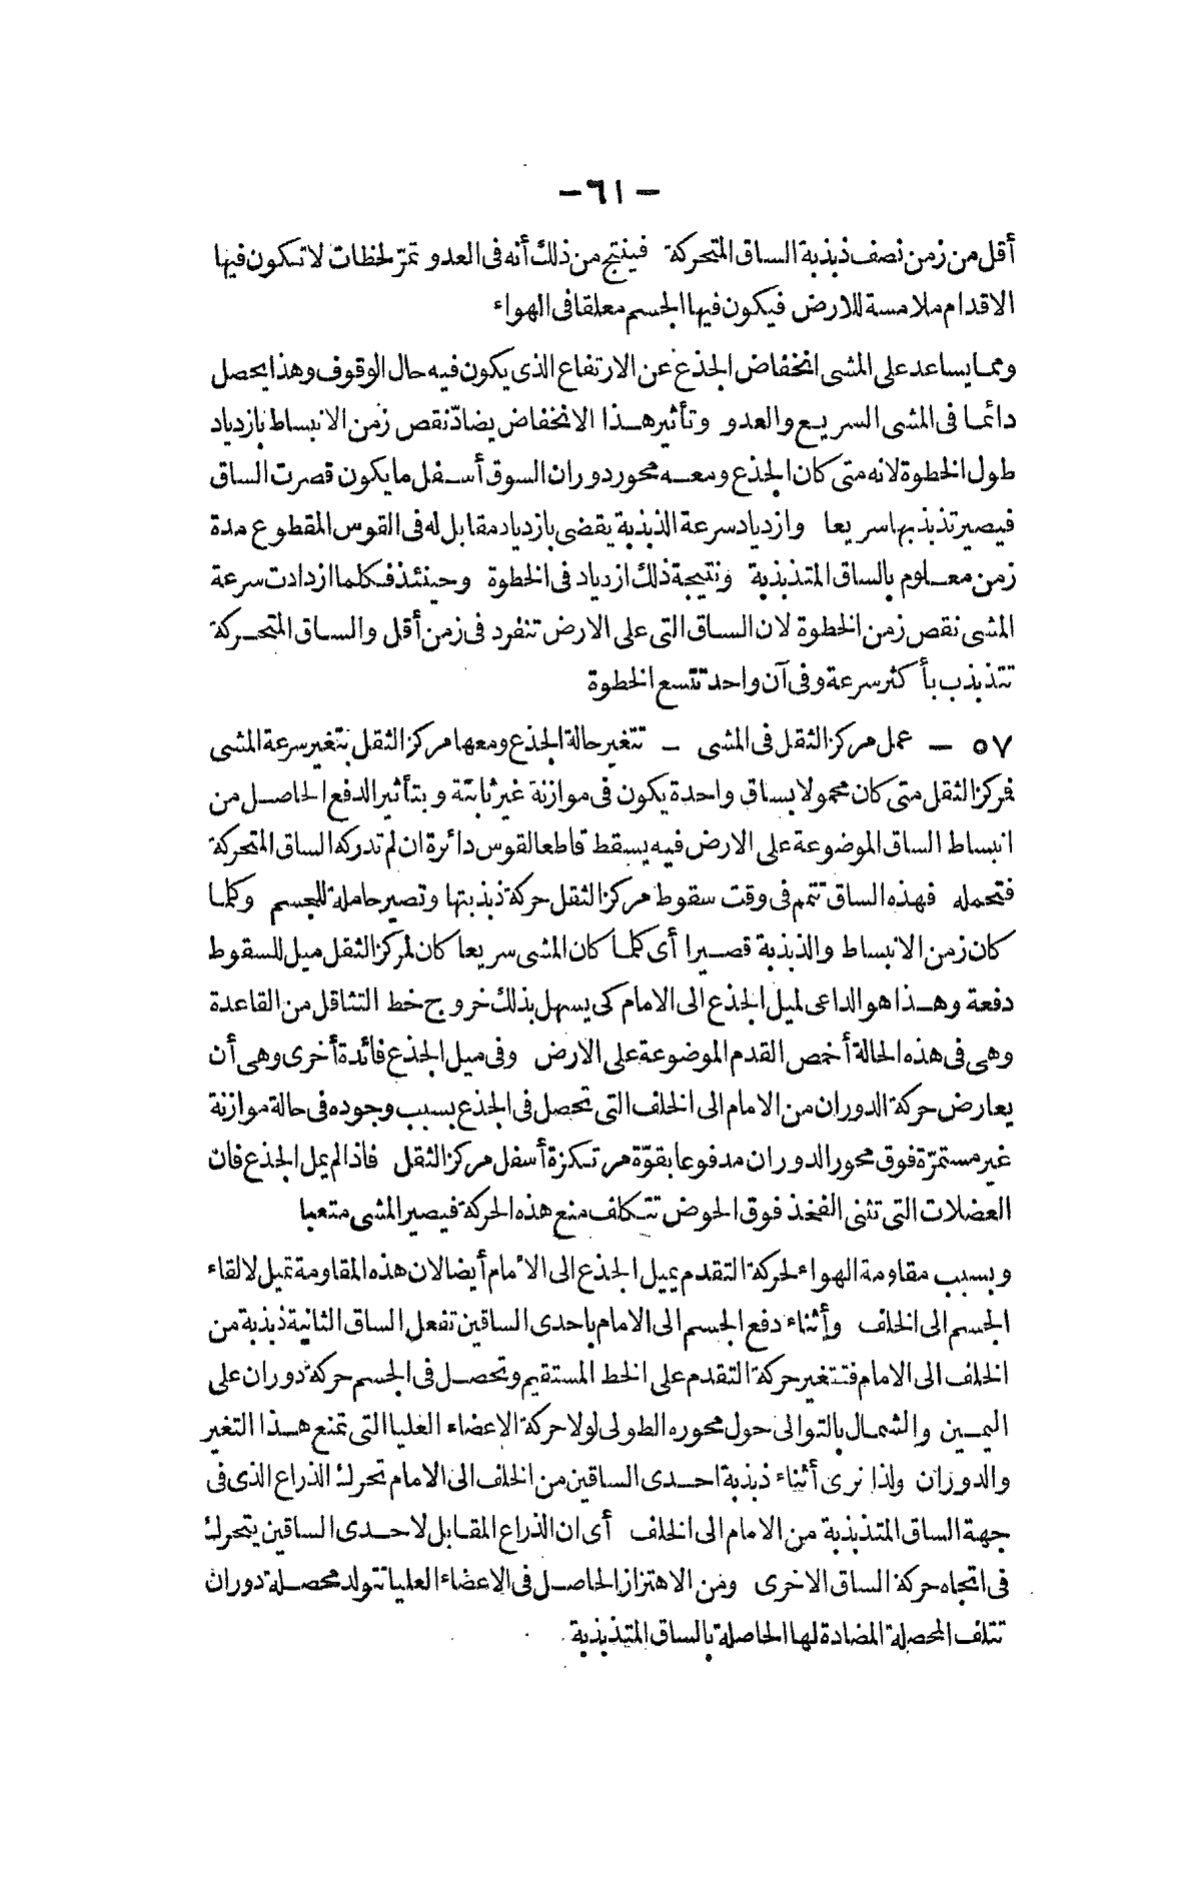 — ٦١ —
أقل من زمن نصف ذبذبة الساق المتحركة فينتج من ذلك أنه فى العدو تمرّ لحظات لا تكون فيها
الاقدام ملامسة للارض فيكون فيها الجسم معلقا فى الهواء
ومما يساعد على المشى انخفاض الجذع عن الارتفاع الذى يكون فيه حال الوقوف وهذا يحصل
دائما فى المشى السريع والعدو وتأثير هذا الانخفاض يضادّ نقص زمن الانبساط بازدياد
طول الخطوة لانه متى كان الجذع ومعه محور دوران السوق أسفل ما يكون قصرت الساق
فيصير تذبذبها سريعا وازدياد سرعة الذبذبة يقضى بازدياد مقابل له فى القوس المقطوع مدة
زمن معلوم بالساق المتذبذبة ونتيجة ذلك ازدياد فى الخطوة وحينئذ فكلما ازدادت سرعة
المشى نقص زمن الخطوة لان الساق التى على الارض تنفرد فى زمن أقل والساق المتحركة
تتذبذب بأكثر سرعة وفى آن واحد تتسع الخطوة
٥٧ — عمل مركز الثقل فى المشى — تتغير حالة الجذع ومعها مركز الثقل بتغير سرعة المشى
فمركز الثقل متى كان محمولا بساق واحدة يكون فى موازنة غير ثابتة وبتأثير الدفع الحاصل من
انبساط الساق الموضوعة على الارض فيه يسقط قاطعا لقوس دائرة ان لم تدركه الساق المتحركة
فتحمله فهذه الساق تتمم فى وقت سقوط مركز الثقل حركة ذبذبتها وتصير حاملة للجسم وكلما
كان زمن الانبساط والذبذبة قصيرا أى كلما كان المشى سريعا كان لمركز الثقل ميل للسقوط
دفعة وهذا هو الداعى لميل الجذع الى الامام كى يسهل بذلك خروج خط التثاقل من القاعدة
وهى فى هذه الحالة أخمص القدم الموضوعة على الارض وفى ميل الجذع فائدة أخرى وهى أن
يعارض حركة الدوران من الامام الى الخلف التى تحصل فى الجذع بسبب وجوده فى حالة موازنة
غير مستمرّة فوق محور الدوران مدفوعا بقوّة مرتكزة أسفل مركز الثقل فاذا لم يمل الجذع فان
العضلات التى تثنى الفخذ فوق الحوض تتكلف منع هذه الحركة فيصير المشى متعبا
وبسبب مقاومة الهواء لحركة التقدم يميل الجذع الى الامام أيضا لان هذه المقاومة تميل لالقاء
الجسم الى الخلف وأثناء دفع الجسم الى الامام باحدى الساقين تفعل الساق الثانية ذبذبة من
الخلف الى الامام فتتغير حركة التقدم على الخط المستقيم وتحصل فى الجسم حركة دوران على
اليمين والشمال بالتوالى حول محوره الطولى لولا حركة الاعضاء العليا التى تمنع هذا التغير
والدوران ولذا نرى أثناء ذبذبة احدى الساقين من الخلف الى الامام تحرك الذراع الذى فى
جهة الساق المتذبذبة من الامام الى الخلف أى ان الذراع المقابل لاحدى الساقين يتحرك
فى اتجاه حركة الساق الاخرى ومن الاهتزاز الحاصل فى الاعضاء العليا تتولد محصلة دوران
تتلف المحصلة المضادة لها الحاصلة بالساق المتذبذبة